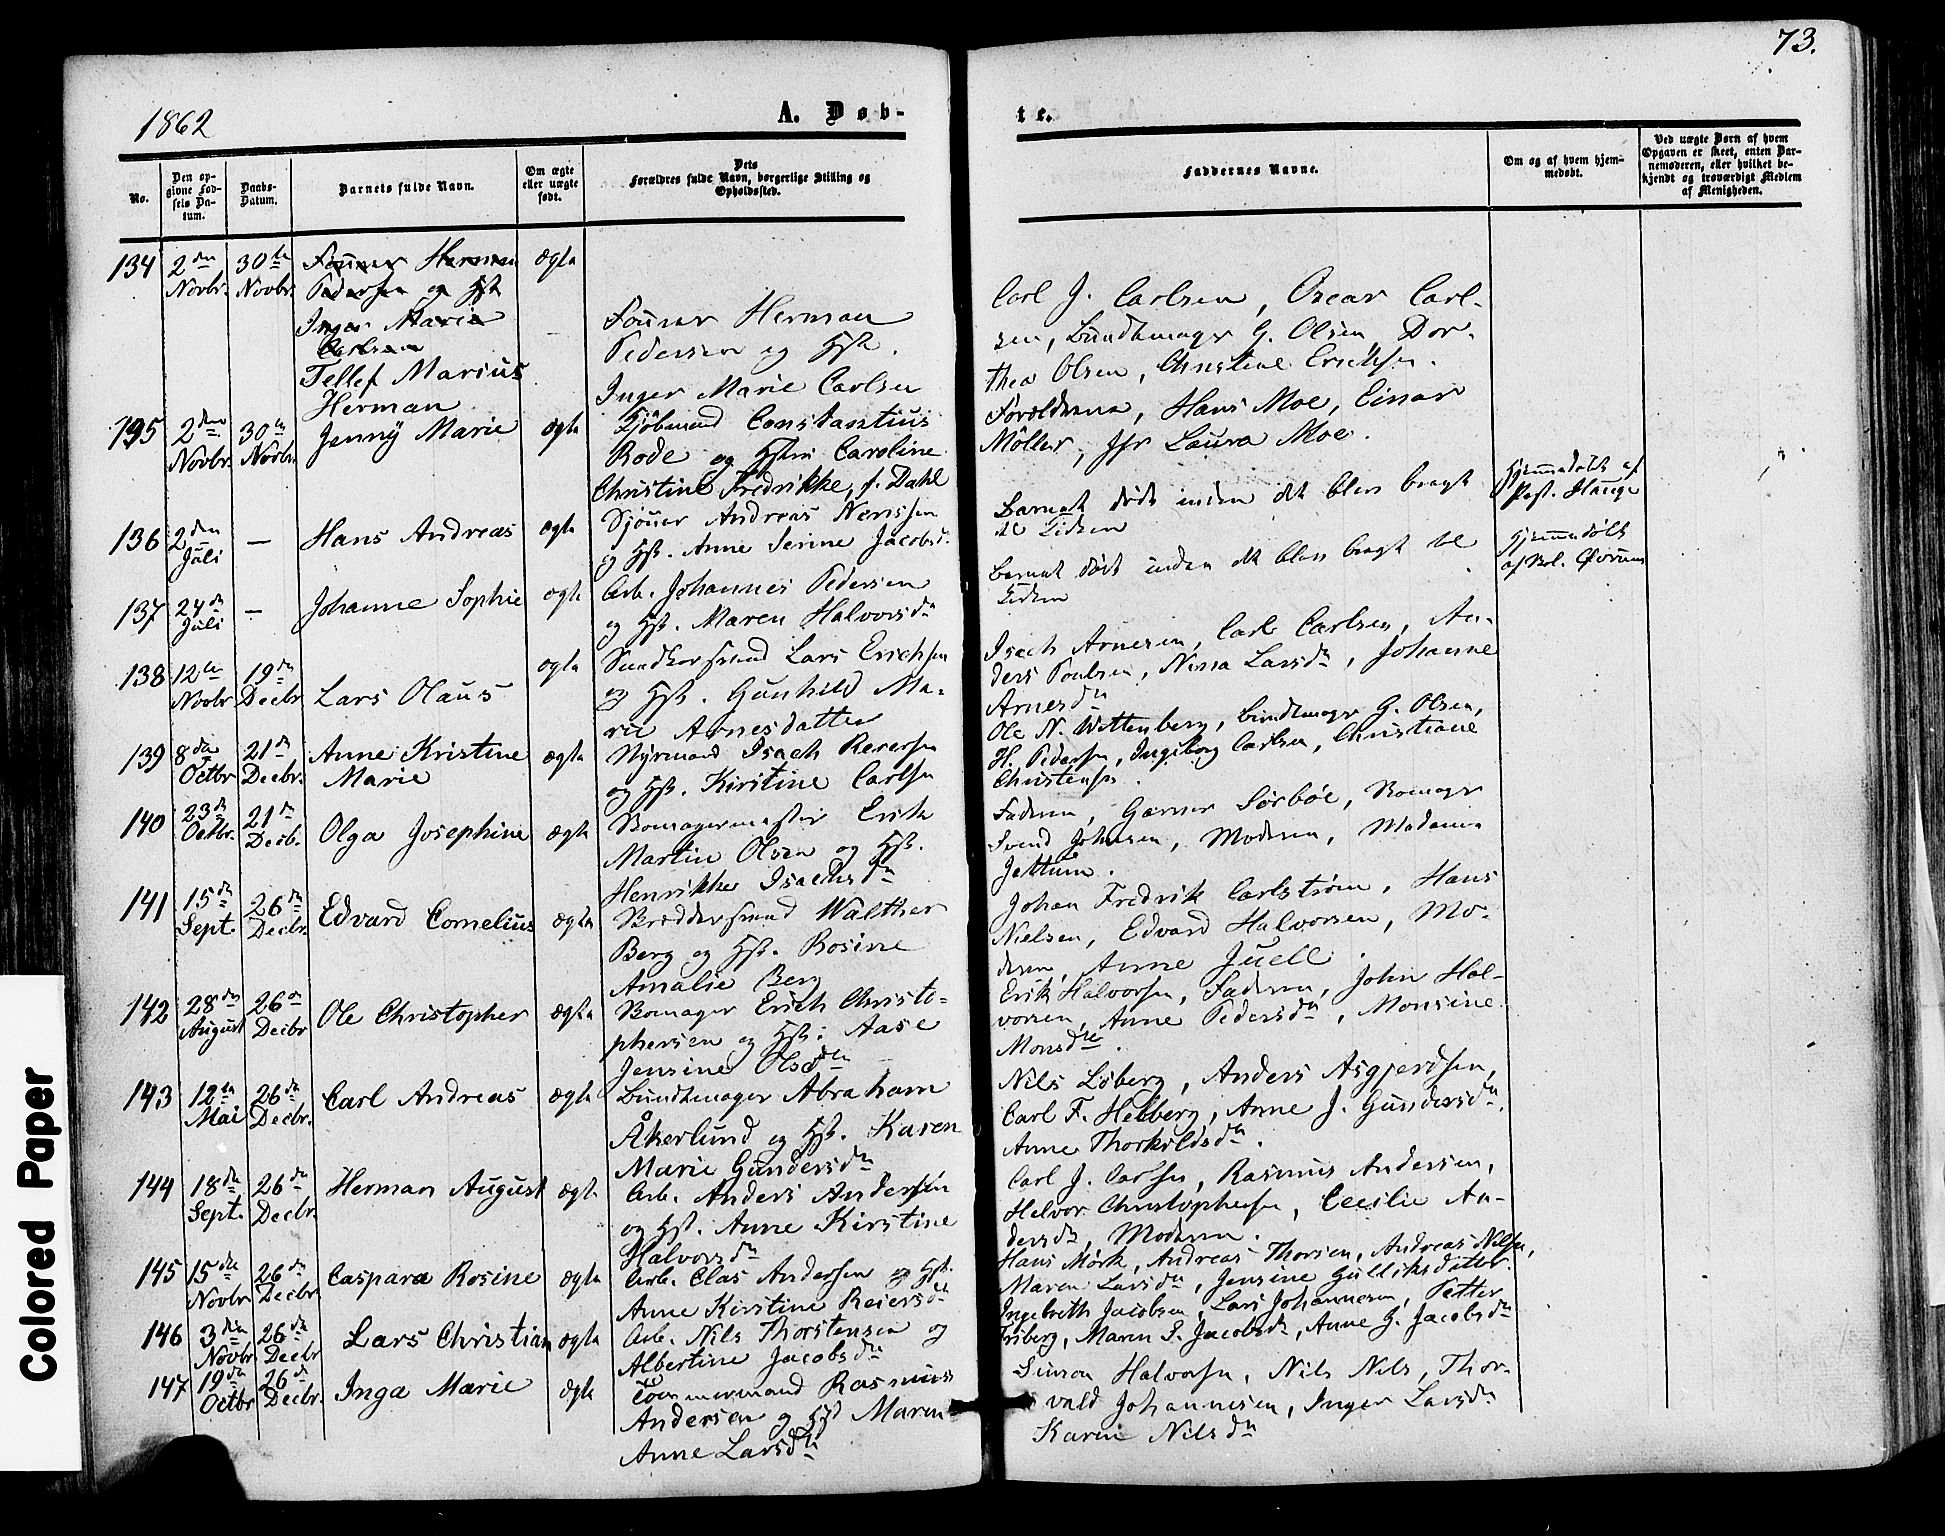 73.
1862
A. Døb-
te.
No.
Den op-
givne Fød-
sels Da-
tum.
Daabs-
Datum.
Barnets fulde Navn.
Om ægte
eller uægte
født.
Dets
Forældres fulde Navn, borgerlige Stilling og
Opholdssted.
Faddernes Navne.
Om og af hvem hjem-
medøbt.
Ved uægte Børn af hvem
Opgaven er skeet, enten Bar-
nemoderen, eller hvilket be-
kjendt og troværdigt Medlem
af Menigheden.
134 2den Novbr. 30te Novbr.
Herman
Pedersen og Hst
Inger Marie
Carlsen
Tellef Marius
Herman
ægte
Herman
Pedersen og Hst.
Inger Marie Carlsen
Carl J. Carlsen, Oscar Carl-
sen, Bundtmager G. Olsen, Dor-
thea Olsen, Christine Erichsen.
135 2den Novbr. 30te Novbr.
Jenny Marie
ægte
Kjøbmand Constantius
Rode og Hstru Caroline
Christine Fredrikke, f. Dahl
Forældrene, Hans Moe, Einar
Möller, Jfr Laura Moe.
136 2den Juli —
Hans Andreas
ægte
Andreas
og Hst. Anne Serine Jacobsd.
Barnet døde inden det blev bragt
til Kirken
Hjemmedøbt af
Past. Hauge
137 24de Juli —
Johanne Sophie
ægte
Arb. Johannes Pedersen
og Hst. Maren Halvorsdn
Barnet døde inden det blev bragt til
Kirken
Hjemmedøbt
138 12te Novbr 19de Decbr
Lars Olaus
ægte
Lars Erichsen
og Hst. Gunhild Ma-
rie Arnesdatter
Isach Arnesen, Carl Carlsen, An-
ders Poulsen, Larsdn, Johanne
Arnesdn
139 8de Octbr 21de Decbr.
Anne Kristine
Marie
ægte
Styrmand Isach
og Hst. Kirstine Carlsen
Ole N. Wettenberg, Bundtmager G. Olsen,
H. Pedersen, Ingeborg Carlsen, Christiane
Christensen.
140 23de Octbr. 21de Decb.
Olga Josephine
ægte
Erik
Martin Olsen og Hst.
Henrikke Isachsdn
Faderen, Garver Sørbøe,
Svend Johnsen, Moderen, Madame
141 15de Sept. 26de Decbr.
Edvard Cornelius
ægte
Walther
Berg og Hst. Rosine
Amalie Berg
Johan Fredrik Carlstrøm, Hans
Nielsen, Edvard Halvorsen, Mo-
deren, Anne Juell.
142 28de August 26de Decbr
Ole Christopher
ægte
Erich Christo-
phersen og Hst. Aase
Jensine Olsdn
Erik Halvorsen, Faderen, John Hal-
vorsen, Anne Pedersdn, Monsine
Monsdn.
143 12te Mai 26de Decbr.
Carl Andreas
ægte
Bundtmager Abraham
Åkerlund og Hst. Karen
Marie Gundersdn
Nils Løberg, Anders Asgjerdsen,
Carl F. Helberg, Anne J. Gundersdn,
Anne Thorkildsdn.
144 18de Sept. 26de Decbr.
Herman August
ægte
Arb. Anders Andersen
og Hst. Anne Kirstine
Halvorsdn
Carl J. Carlsen, Rasmus Andersen,
Halvor Christophersen, Cecilie An-
dersdn, Moderen.
145 15de Novbr 26de Decbr
Caspara Rosine
ægte
Arb. Clas Andersen og Hst.
Anne Kirstine Reiersdn
Hans Mörk, Andreas Thorsen, Andreas Nilsen,
Maren Larsdn, Jensine Gulliksdatter.
146 3den Novbr 26de Decbr
Lars Christian
ægte
Arb. Nils Thorstensen og
Albertine Jacobsdn
Ingebreth Jacobsen, Lars Johannesen, Petter
Friberg, Maren S. Jacobsdn, Anne G. Jacobsdn
147 19de Octbr 26de Decbr.
Inga Marie
ægte
Tömmermand Rasmus
Andersen og Hst Maren
Anne Larsdn
Simon Halvorsen, Nils Nils, Thor-
vald Johannesen, Inger Larsdn
Karen Nilsdn
Colored Paper